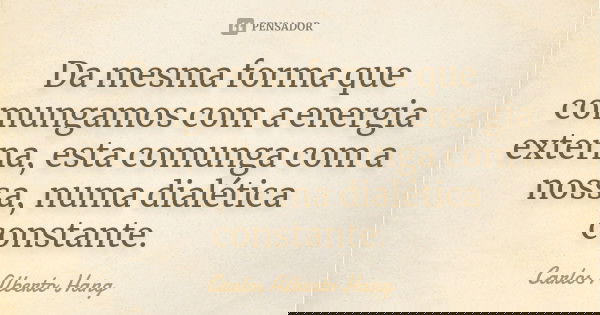 PENSADOR
Da mesma forma que
comungamos com a energia
externa, esta comunga com a
nossa, numa dialética
constante.
Carlos Alberto Hang